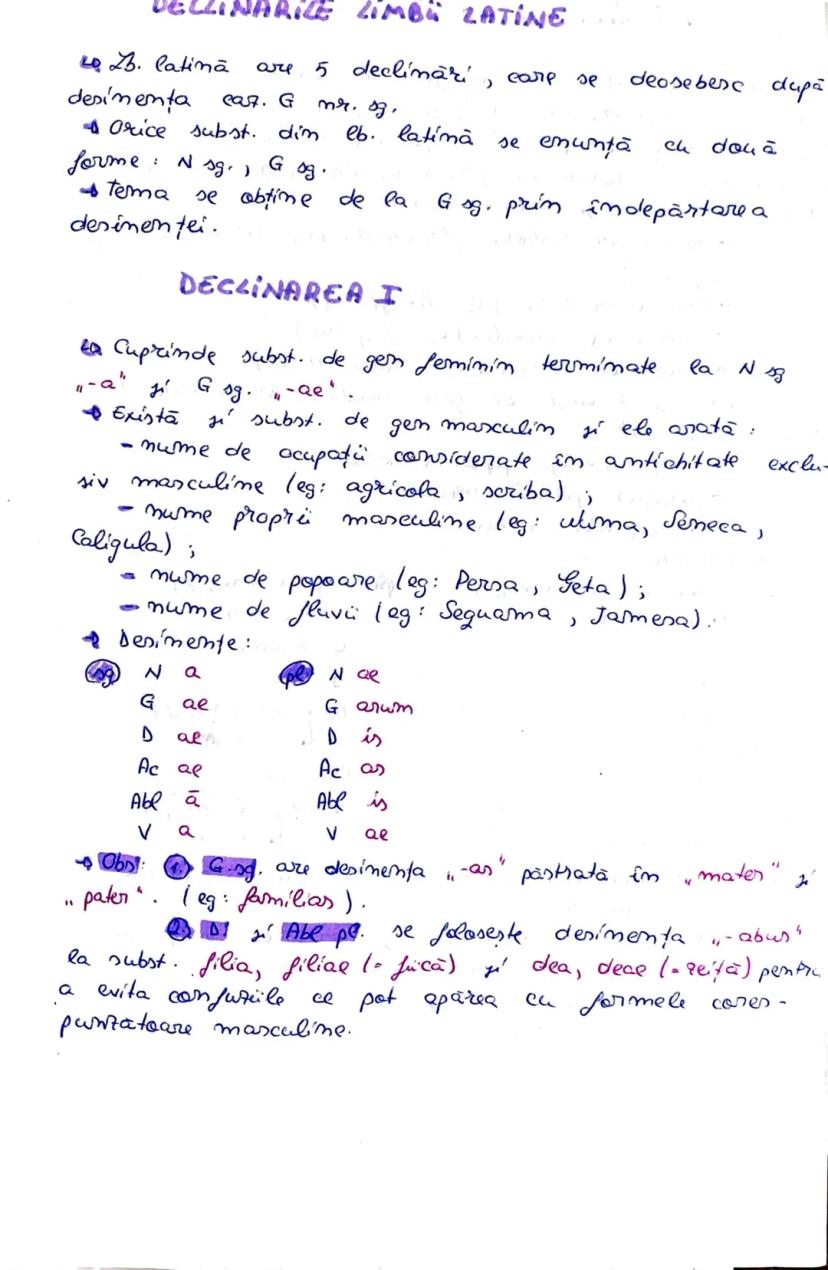 DECLINĂRILE LIMBII LATINE
Lb. latină are 5 declinări, care se deosebesc după
desinența caz. G nr. sg.
Orice subst. din lb. latină se enunță cu două
forme: N sg., G sg.
Tema se obține de la G sg. prin îndepărtarea
desinenței.
DECLINAREA I
Cuprinde subst. de gen feminin terminate la N sg
„-a" și G sg. „-ae".
Există și subst. de gen masculin și ele arată:
- nume de ocupații considerate în antichitate exclu-
siv masculine (eg: agricola, scriba);
- nume proprii masculine (eg: Seneca,
Caligula);
- nume de popoare (eg: Persa, Geta);
- nume de fluvii (eg: Sequana, Tamesa).
Desinențe:
sg N a pl N ae
G ae G arum
D ae D is
Ac ae Ac as
Abl ā Abl is
V a V ae
Obs: 1. G.sg. are desinența „-as" păstrată în „mater" și
„pater". (eg: familias).
2. D și Abl pl. se folosește desinența „-abus"
la subst. filia, filiae (= fiică) și dea, deae (= zeiță) pentru
a evita confuziile ce pot apărea cu formele cores-
punzatoare masculine.